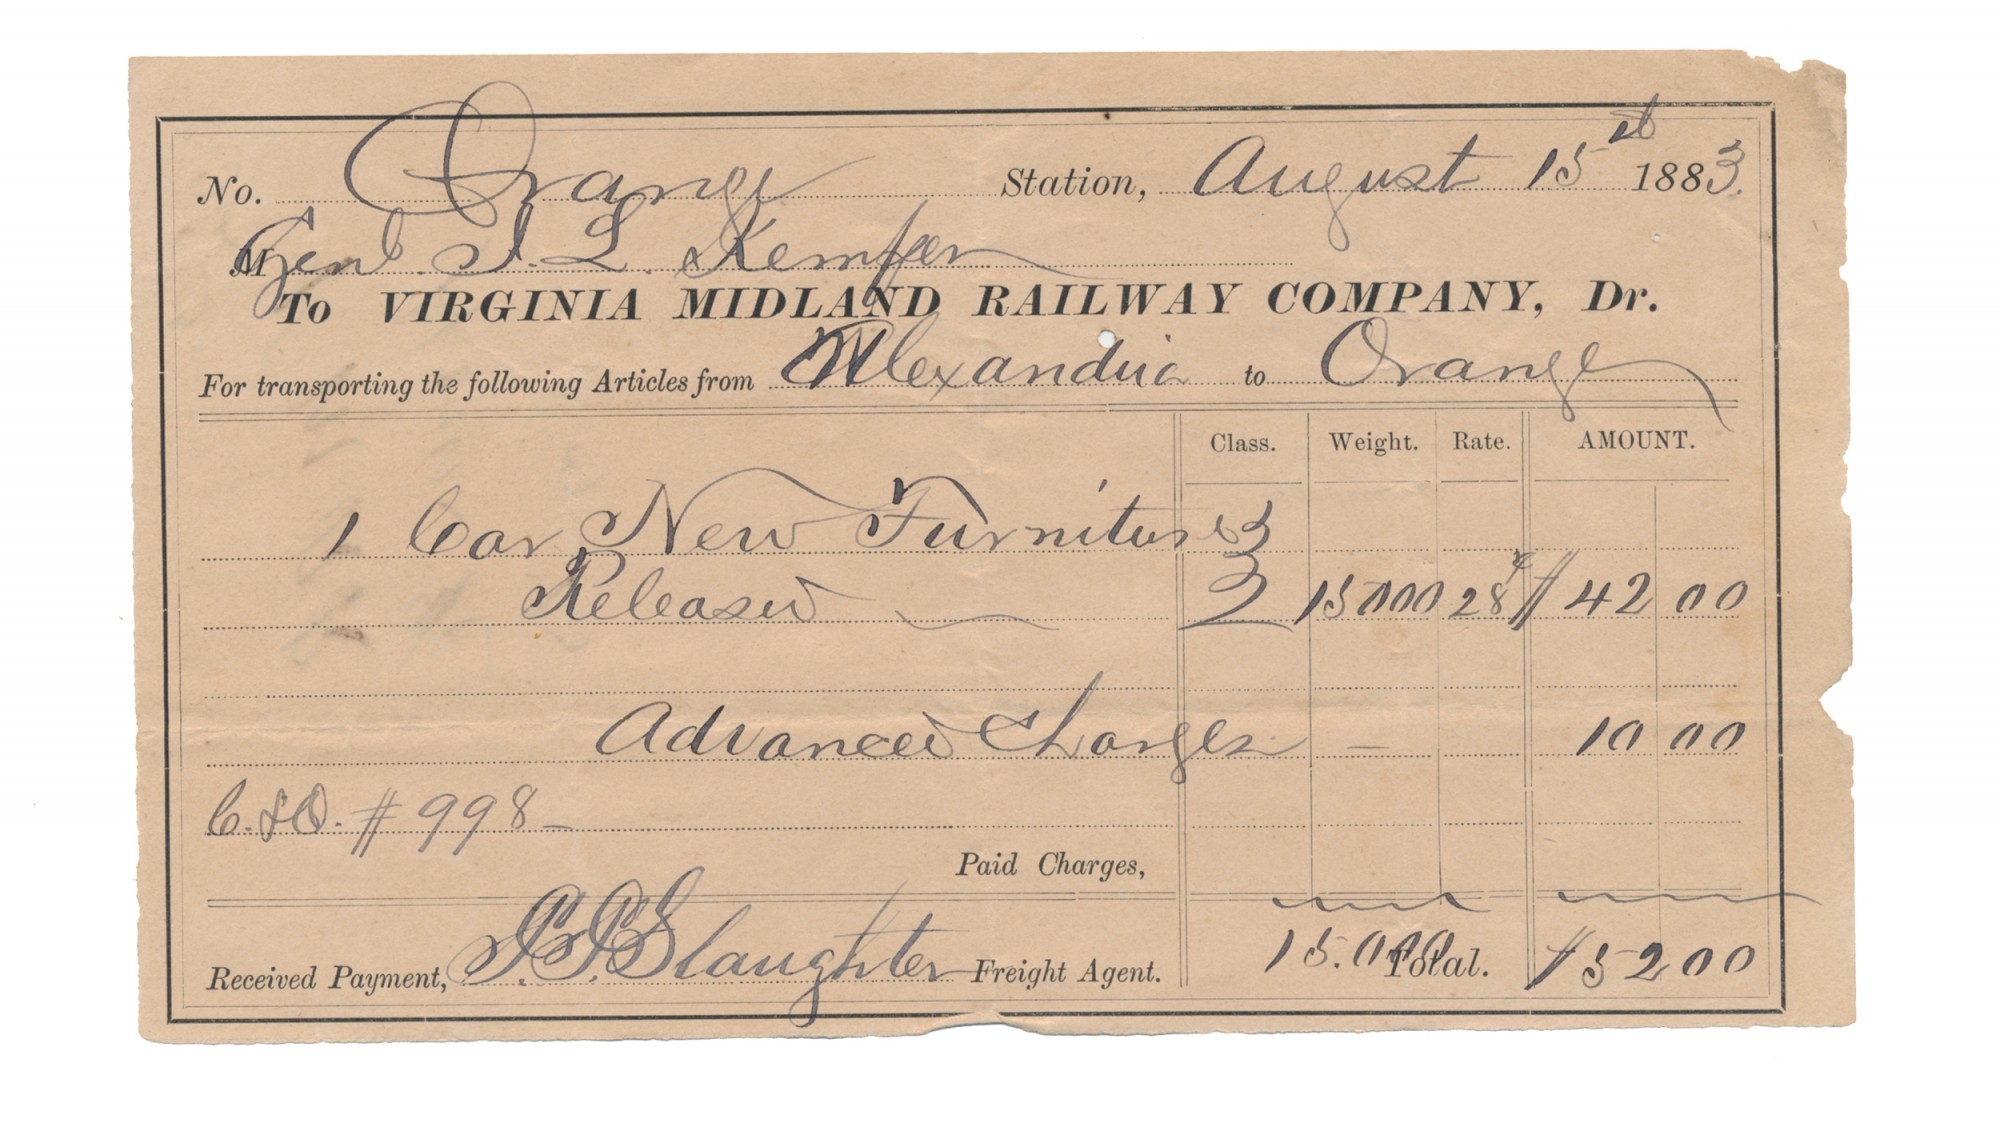 No. Orange Station, August 15th 1883.
M Genl. J. L. Kemper
To VIRGINIA MIDLAND RAILWAY COMPANY, Dr.
For transporting the following Articles from Alexandria to Orange
Class. Weight. Rate. AMOUNT.
1 Car New Furniture
Released 3 15000 28 $42 00
Advanced Charges — 10 00
C.&O. # 998—
Paid Charges,
Received Payment, Slaughter Freight Agent. 15.000 Total. $52 00